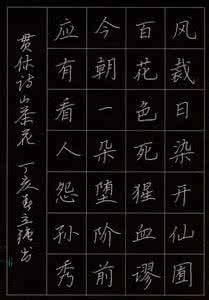 风裁日染开仙圃
百花色死猩血谬
今朝一朵堕阶前
应有看人怨孙秀
贯休诗山茶花 丁亥春立强书